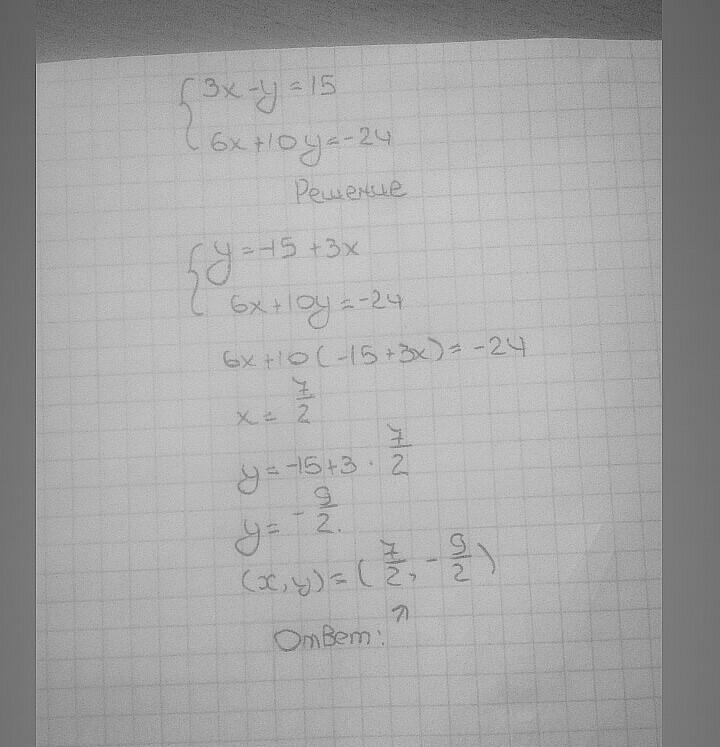 { 3x - y = 15
6x + 10y = -24
Решение
{ y = -15 + 3x
6x + 10y = -24
6x + 10(-15 + 3x) = -24
x = 7/2
y = -15 + 3 · 7/2
y = - 9/2.
(x, y) = (7/2, - 9/2)
Ответ: ↗